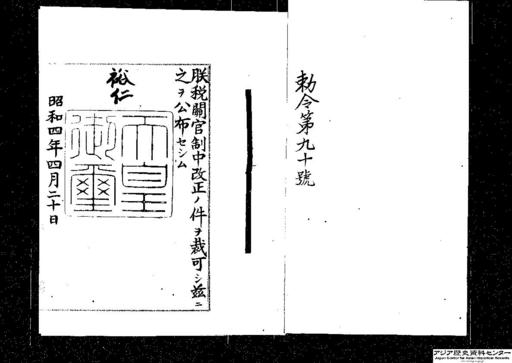 勅令第九十號
朕税關官制中改正ノ件ヲ裁可シ茲ニ
之ヲ公布セシム
裕仁
天皇御璽
昭和四年四月二十日
アジア歴史資料センター
Japan Center for Asian Historical Records